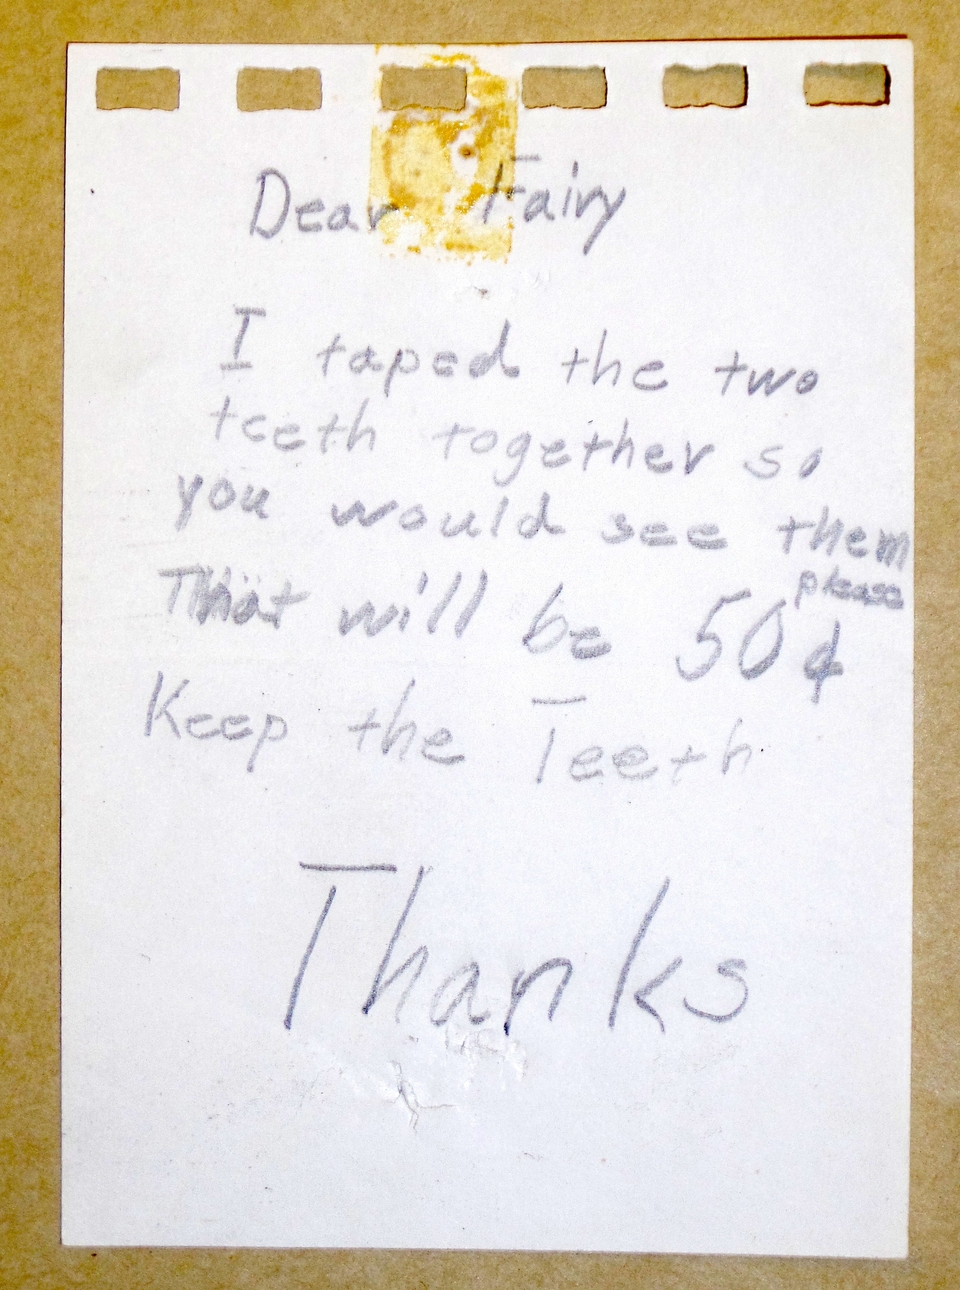 Dear Fairy
I taped the two
teeth together so
you would see them
please
That will be 50¢
Keep the Teeth
Thanks